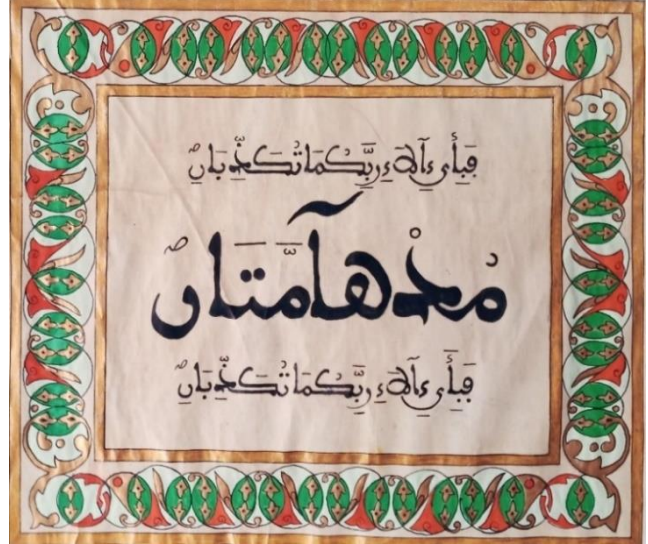 فَبِأَيِّ ءَالَآءِ رَبِّكُمَا تُكَذِّبَانِ
مُدْهَآمَّتَانِ
فَبِأَيِّ ءَالَآءِ رَبِّكُمَا تُكَذِّبَانِ